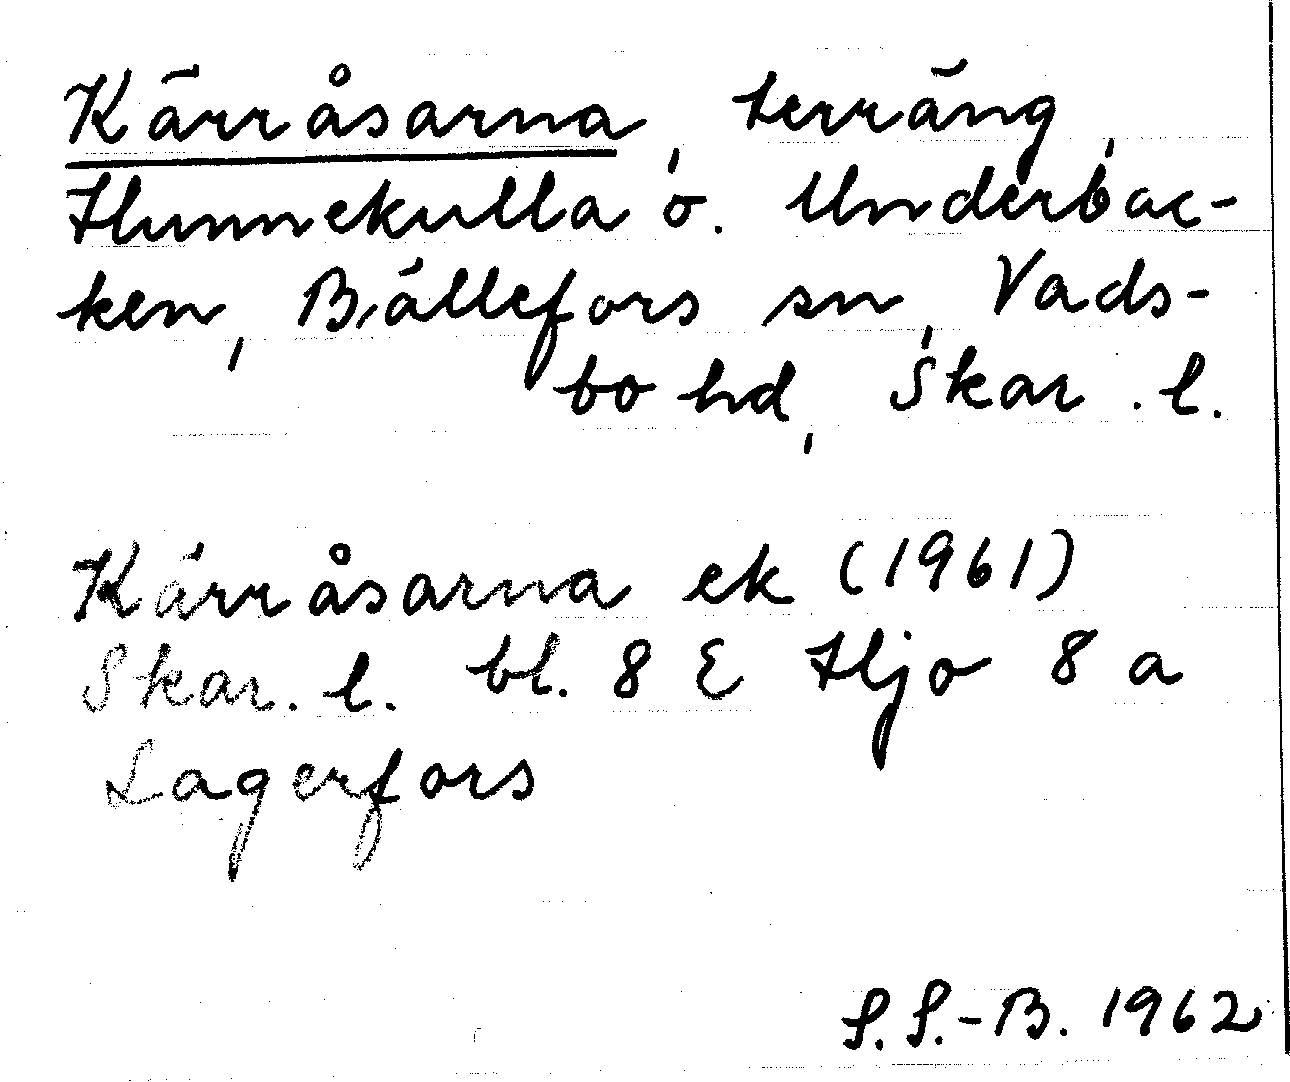 Kärråsarna, terräng,
Hunnekulla o. Underbac-
ken, Bällefors sn, Vads-
bo hd, Skar. l.
Kärråsarna ek (1961)
Skar. l. bl. 8 E Hjo 8 a
Lagerfors
S. S.-B. 1962